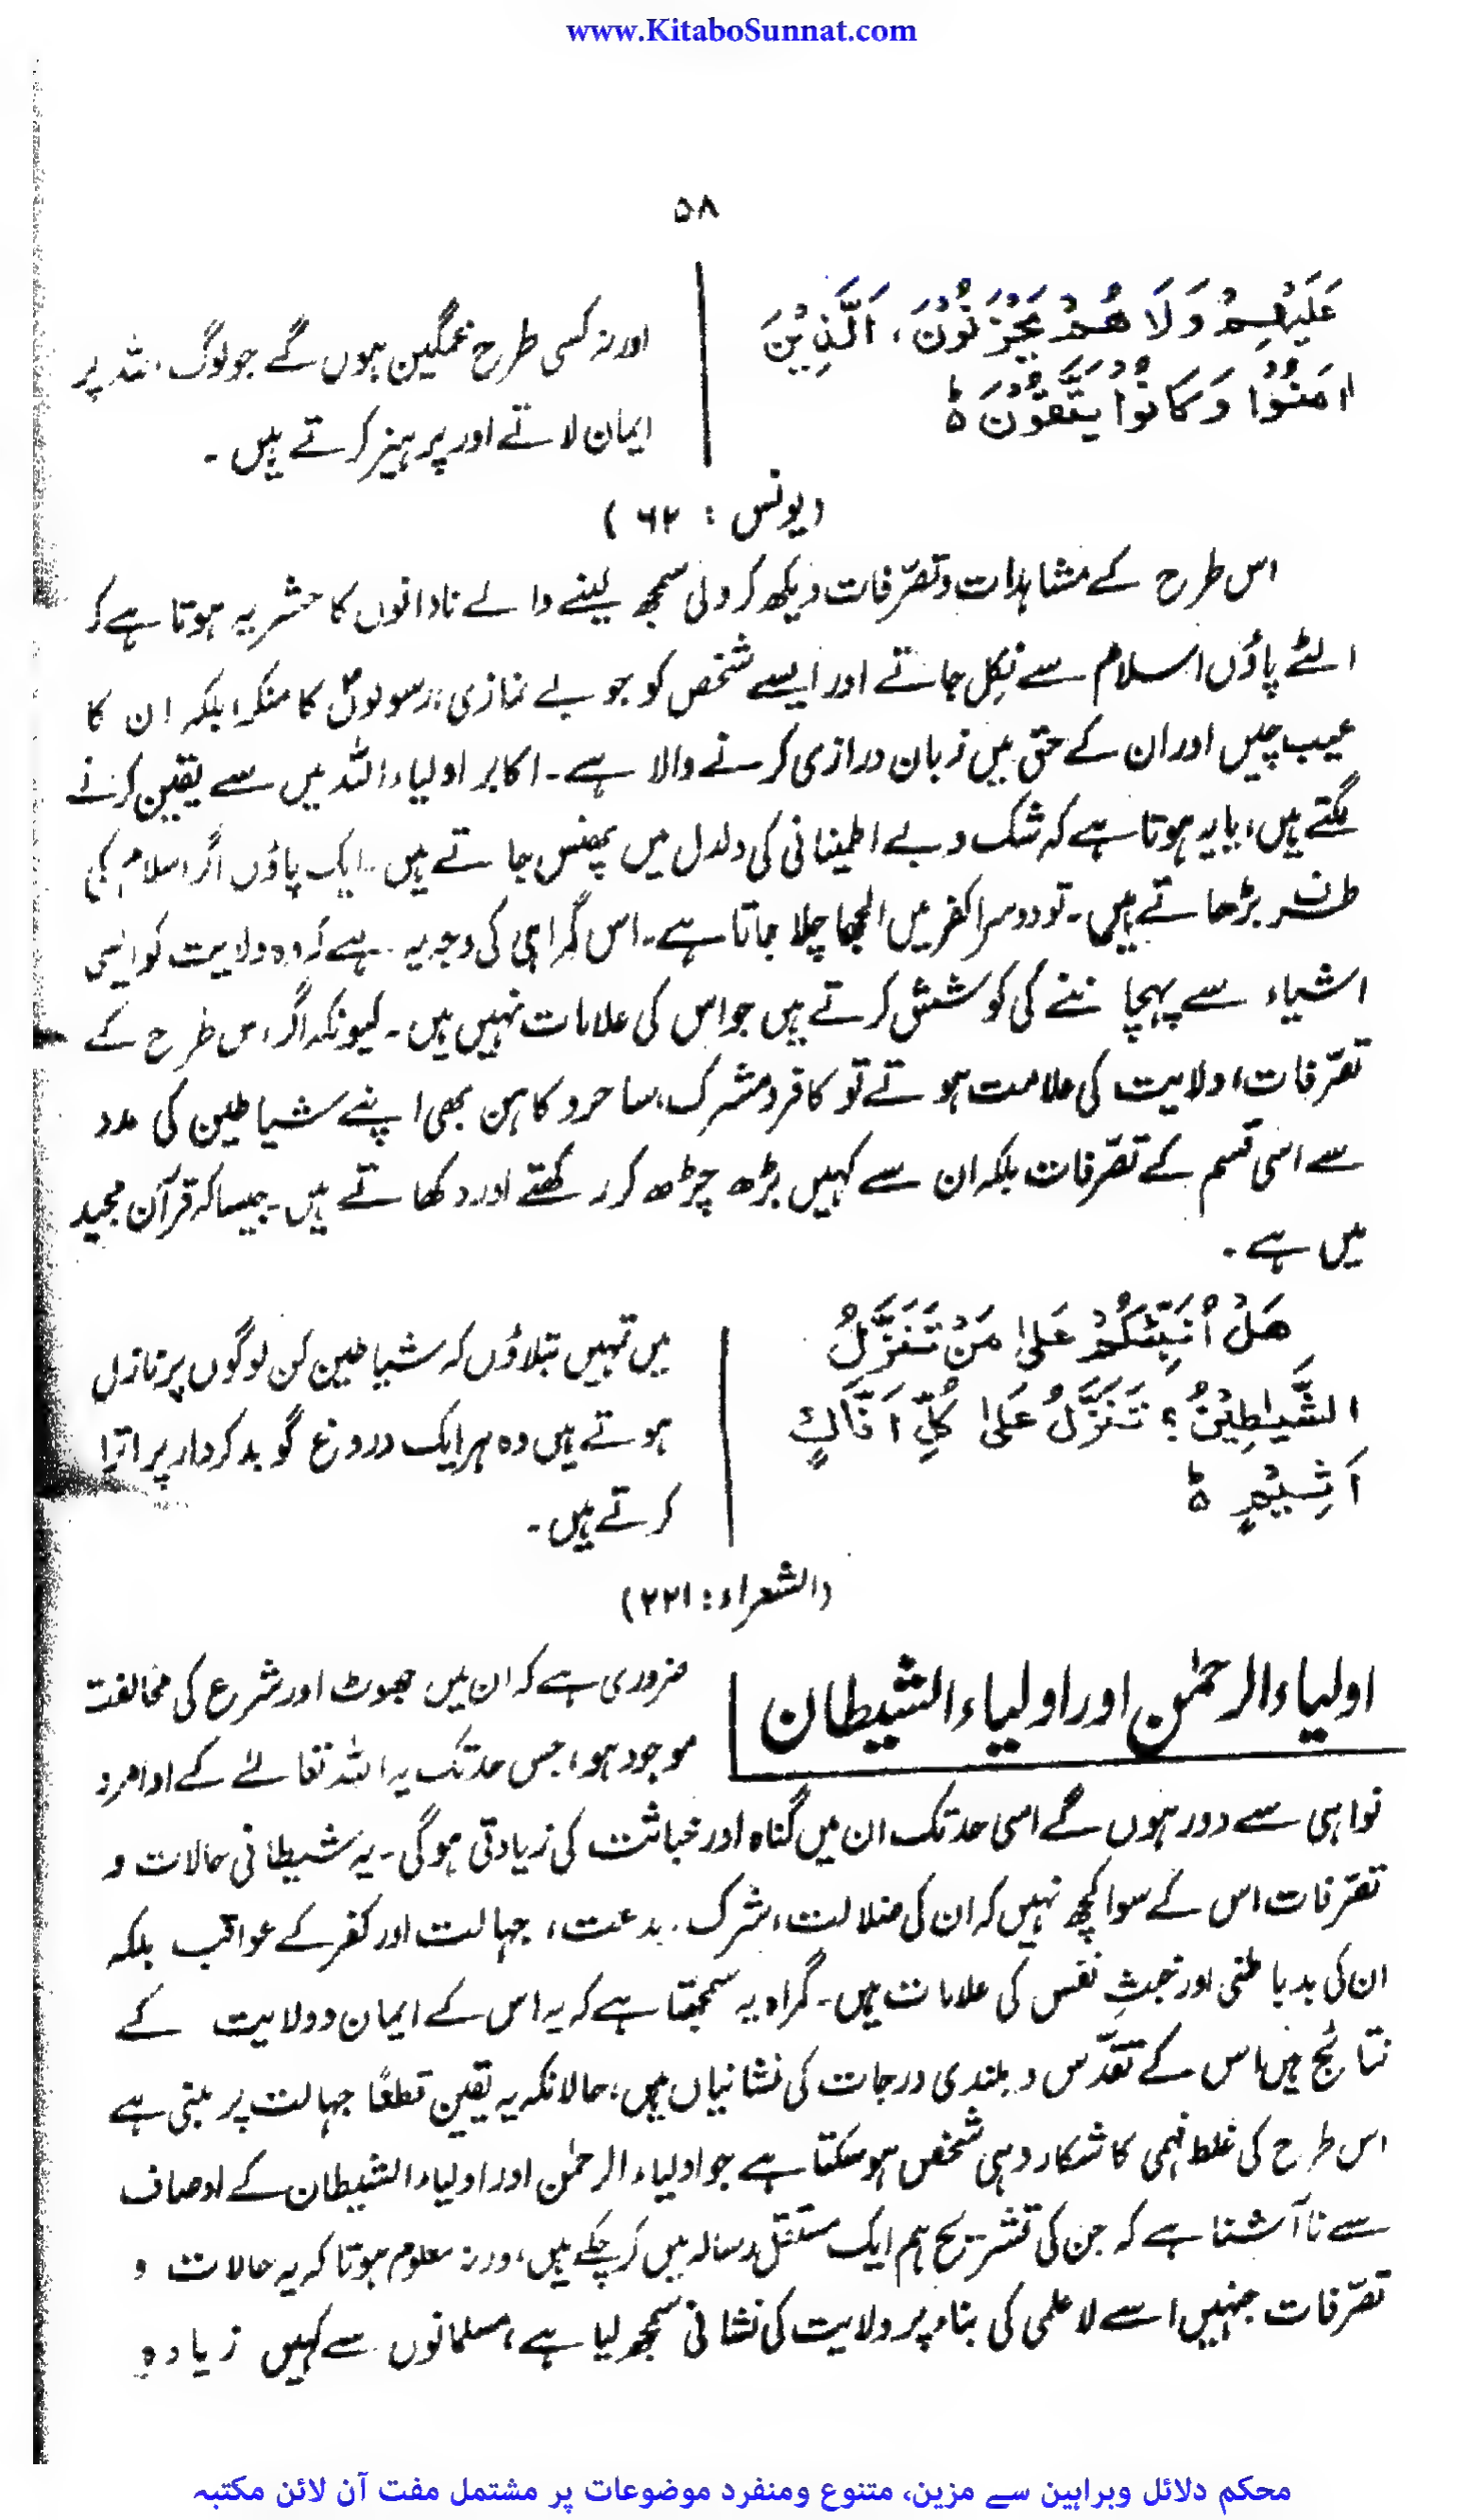 www.KitaboSunnat.com
۵۸
عَلَيْهِمْ وَلَا هُمْ يَحْزَنُوْنَ، اَلَّذِيْنَ
اٰمَنُوْا وَكَانُوْا يَتَّقُوْنَ ۵
اور نہ کسی طرح غمگین ہوں گے جو لوگ اللہ پر
ایمان لاتے اور پرہیز کرتے ہیں ۔
(یونس : ۶۲ )
اس طرح کے مشاہدات و تصرّفات دیکھ کر ولی سمجھ لینے والے نادانوں کا حشر یہ ہوتا ہے کہ
الٹے پاؤں اسلام سے نکل جاتے اور ایسے شخص کو جو بے نمازی، رسولوں کا منکر، بلکہ ان کا
عیب چیں اور ان کے حق میں زبان درازی کرنے والا ہے۔ اکابر اولیاء اللہ میں سے یقین کرنے
لگتے ہیں، یا یہ ہوتا ہے کہ شک و بے اطمینانی کی دلدل میں پھنس جاتے ہیں۔ ایک پاؤں اگر اسلام کی
طرف بڑھاتے ہیں۔ تو دوسرا کفر میں الجھا چلا جاتا ہے۔ اس گمراہی کی وجہ یہ ہے کہ وہ ولایت کو ایسی
اشیاء سے پہچاننے کی کوشش کرتے ہیں جو اس کی علامات نہیں ہیں۔ کیونکہ اگر اس طرح کے
تصرّفات، ولایت کی علامت ہوتے تو کافر و مشرک، ساحر و کاہن بھی اپنے شیاطین کی مدد
سے اسی قسم کے تصرّفات بلکہ ان سے کہیں بڑھ چڑھ کر رکھتے اور دکھاتے ہیں۔ جیسا کہ قرآن مجید
میں ہے ۔
هَلْ اُنَبِّئُكُمْ عَلٰى مَنْ تَنَزَّلُ
الشَّيٰطِيْنُ ؟ تَنَزَّلُ عَلٰى كُلِّ اَفَّاكٍ
اَثِيْمٍ ۵
میں تمہیں بتلاؤں کہ شیاطین کن لوگوں پر نازل
ہوتے ہیں وہ ہر ایک دروغ گو بدکردار پر اترا
کرتے ہیں۔
(الشعراء : ۲۲۱)
اولیاء الرحمٰن اور اولیاء الشیطان
ضروری ہے کہ ان میں جھوٹ اور شرع کی مخالفت
موجود ہو، جس حد تک یہ اللہ تعالےٰ کے اوامر و
نواہی سے دور ہوں گے اسی حد تک ان میں گناہ اور خباثت کی زیادتی ہوگی۔ یہ شیطانی حالات و
تصرّفات اس کے سوا کچھ نہیں کہ ان کی ضلالت، شرک، بدعت، جہالت اور کفر کے عواقب بلکہ
ان کی بد باطنی اور خبثِ نفس کی علامات ہیں۔ گمراہ یہ سمجھتا ہے کہ یہ اس کے ایمان و ولایت کے
نتائج ہیں اس کے تقدّس و بلندی درجات کی نشانیاں ہیں، حالانکہ یہ یقین قطعًا جہالت پر مبنی ہے
اس طرح کی غلط فہمی کا شکار وہی شخص ہو سکتا ہے جو اولیاء الرحمٰن اور اولیاء الشیطان کے اوصاف
سے نا آشنا ہے کہ جن کی تشریح ہم ایک مستقل رسالہ میں کر چکے ہیں، ورنہ معلوم ہوتا کہ یہ حالات و
تصرّفات جنہیں اسے لاعلمی کی بناء پر ولایت کی نشانی سمجھ لیا ہے، مسلمانوں سے کہیں زیادہ
محکم دلائل وبراہین سے مزین، متنوع ومنفرد موضوعات پر مشتمل مفت آن لائن مکتبہ